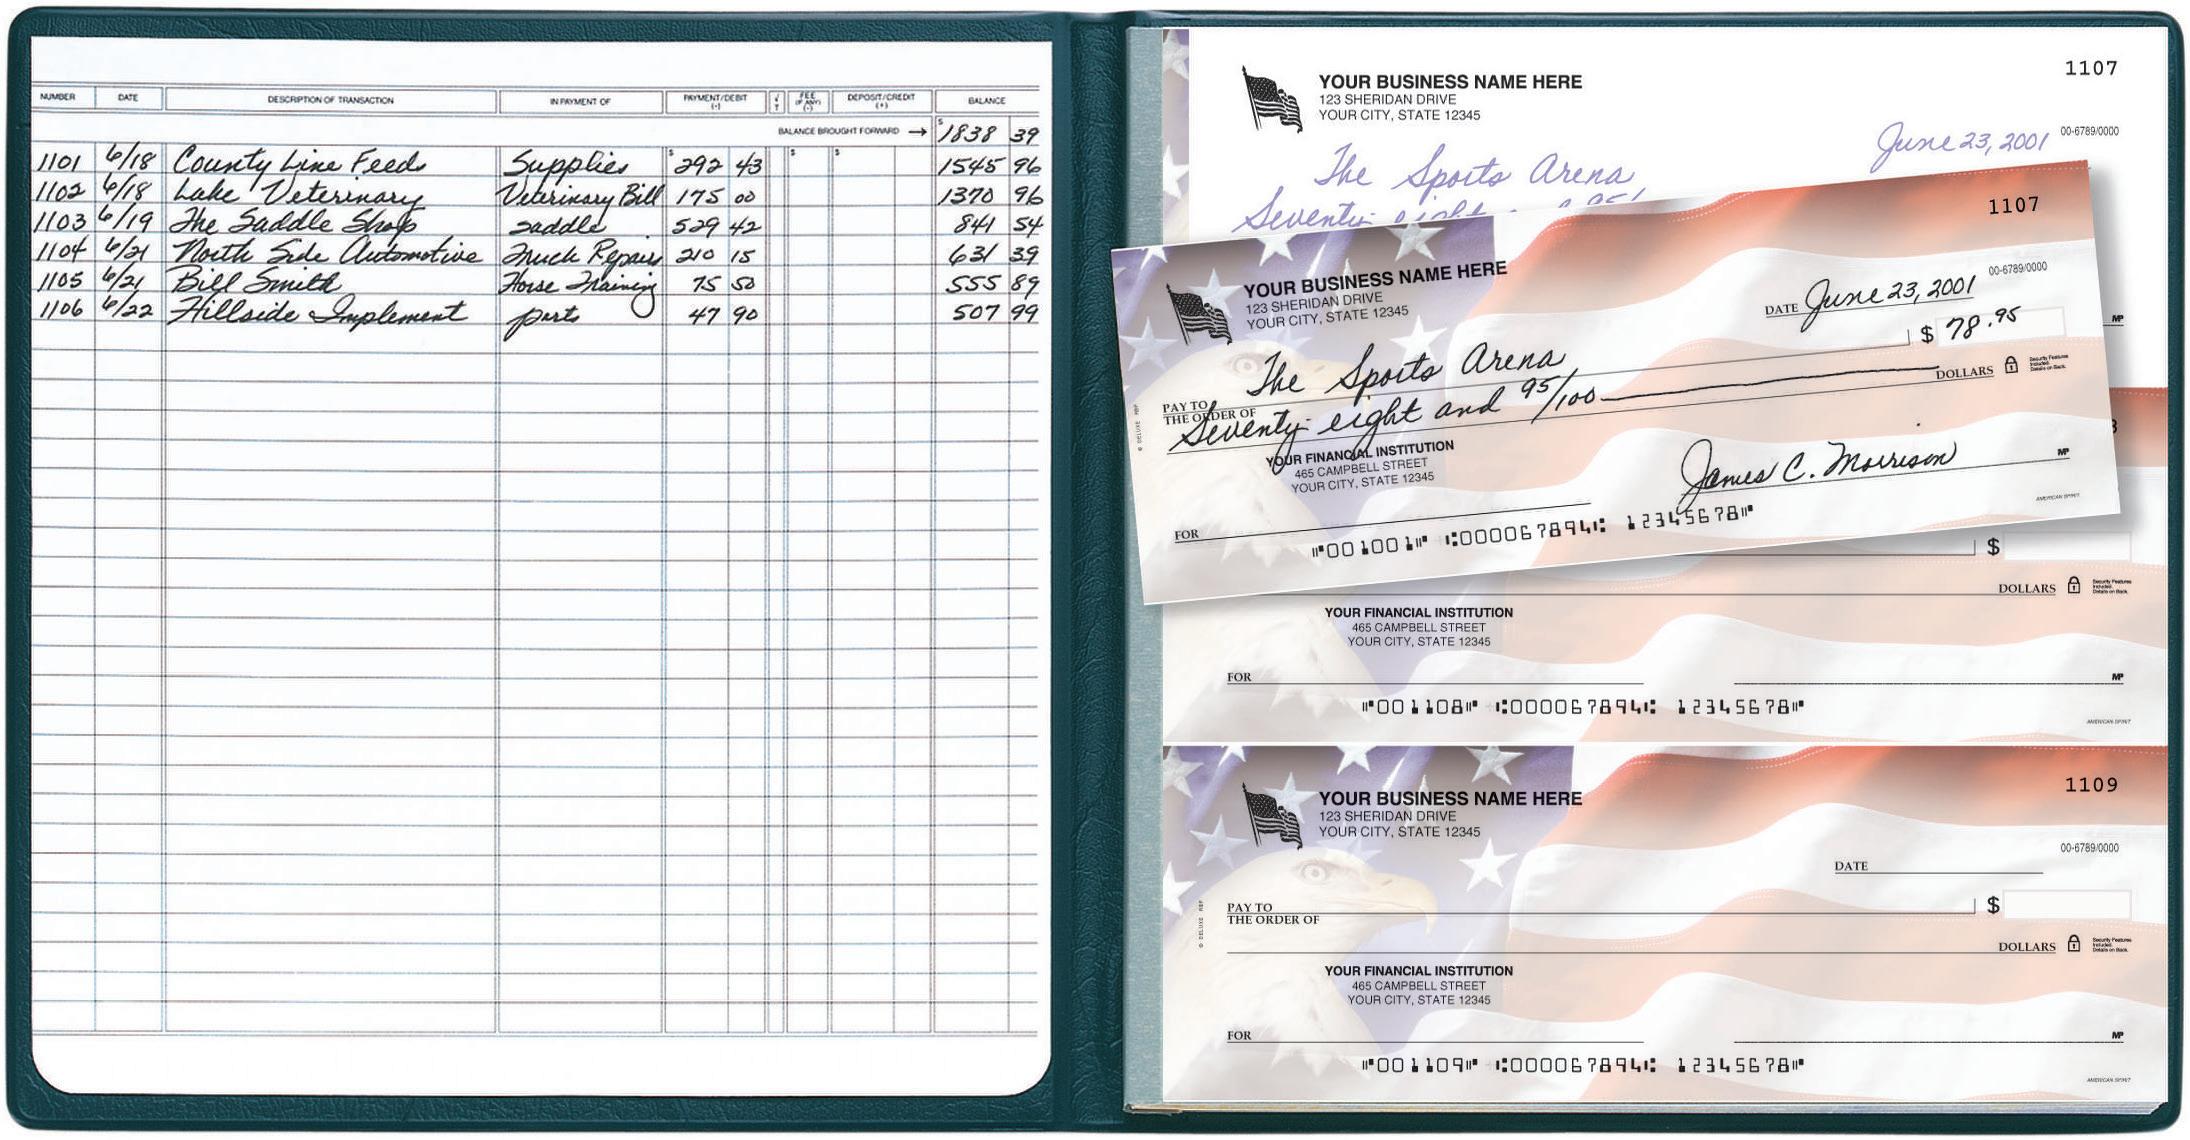 NUMBER DATE DESCRIPTION OF TRANSACTION IN PAYMENT OF PAYMENT/DEBIT (-) √ T FEE (IF ANY) (-) DEPOSIT/CREDIT (+) BALANCE
BALANCE BROUGHT FORWARD → $ 1838 39
1101 6/18 County Line Feeds Supplies $ 292 43 $ $ 1545 96
1102 6/18 Lake Veterinary Veterinary Bill 175 00 1370 96
1103 6/19 The Saddle Shop saddle 529 42 841 54
1104 6/21 North Side Automotive Truck Repairs 210 15 631 39
1105 6/21 Bill Smith Horse Training 75 50 555 89
1106 6/22 Hillside Implement parts 47 90 507 99
1107
YOUR BUSINESS NAME HERE
123 SHERIDAN DRIVE
YOUR CITY, STATE 12345
00-6789/0000
June 23, 2001
The Sports Arena
Seventy eight and 95/
MP
1107
YOUR BUSINESS NAME HERE
123 SHERIDAN DRIVE
YOUR CITY, STATE 12345
00-6789/0000
DATE June 23, 2001
PAY TO
THE ORDER OF
The Sports Arena $ 78.95
Seventy-eight and 95/100 DOLLARS
Security Features
Included.
Details on Back.
© DELUXE RBF
YOUR FINANCIAL INSTITUTION
465 CAMPBELL STREET
YOUR CITY, STATE 12345
James C. Morrison
MP
FOR
AMERICAN SPIRIT
⑈001001⑈ ⑆000067894⑆ 12345678⑈
3
$
DOLLARS
Security Features
Included.
Details on Back.
YOUR FINANCIAL INSTITUTION
465 CAMPBELL STREET
YOUR CITY, STATE 12345
FOR
MP
⑈001108⑈ ⑆000067894⑆ 12345678⑈
AMERICAN SPIRIT
1109
YOUR BUSINESS NAME HERE
123 SHERIDAN DRIVE
YOUR CITY, STATE 12345
00-6789/0000
DATE
PAY TO
THE ORDER OF
$
DOLLARS
Security Features
Included.
Details on Back.
© DELUXE RBF
YOUR FINANCIAL INSTITUTION
465 CAMPBELL STREET
YOUR CITY, STATE 12345
FOR
MP
⑈001109⑈ ⑆000067894⑆ 12345678⑈
AMERICAN SPIRIT